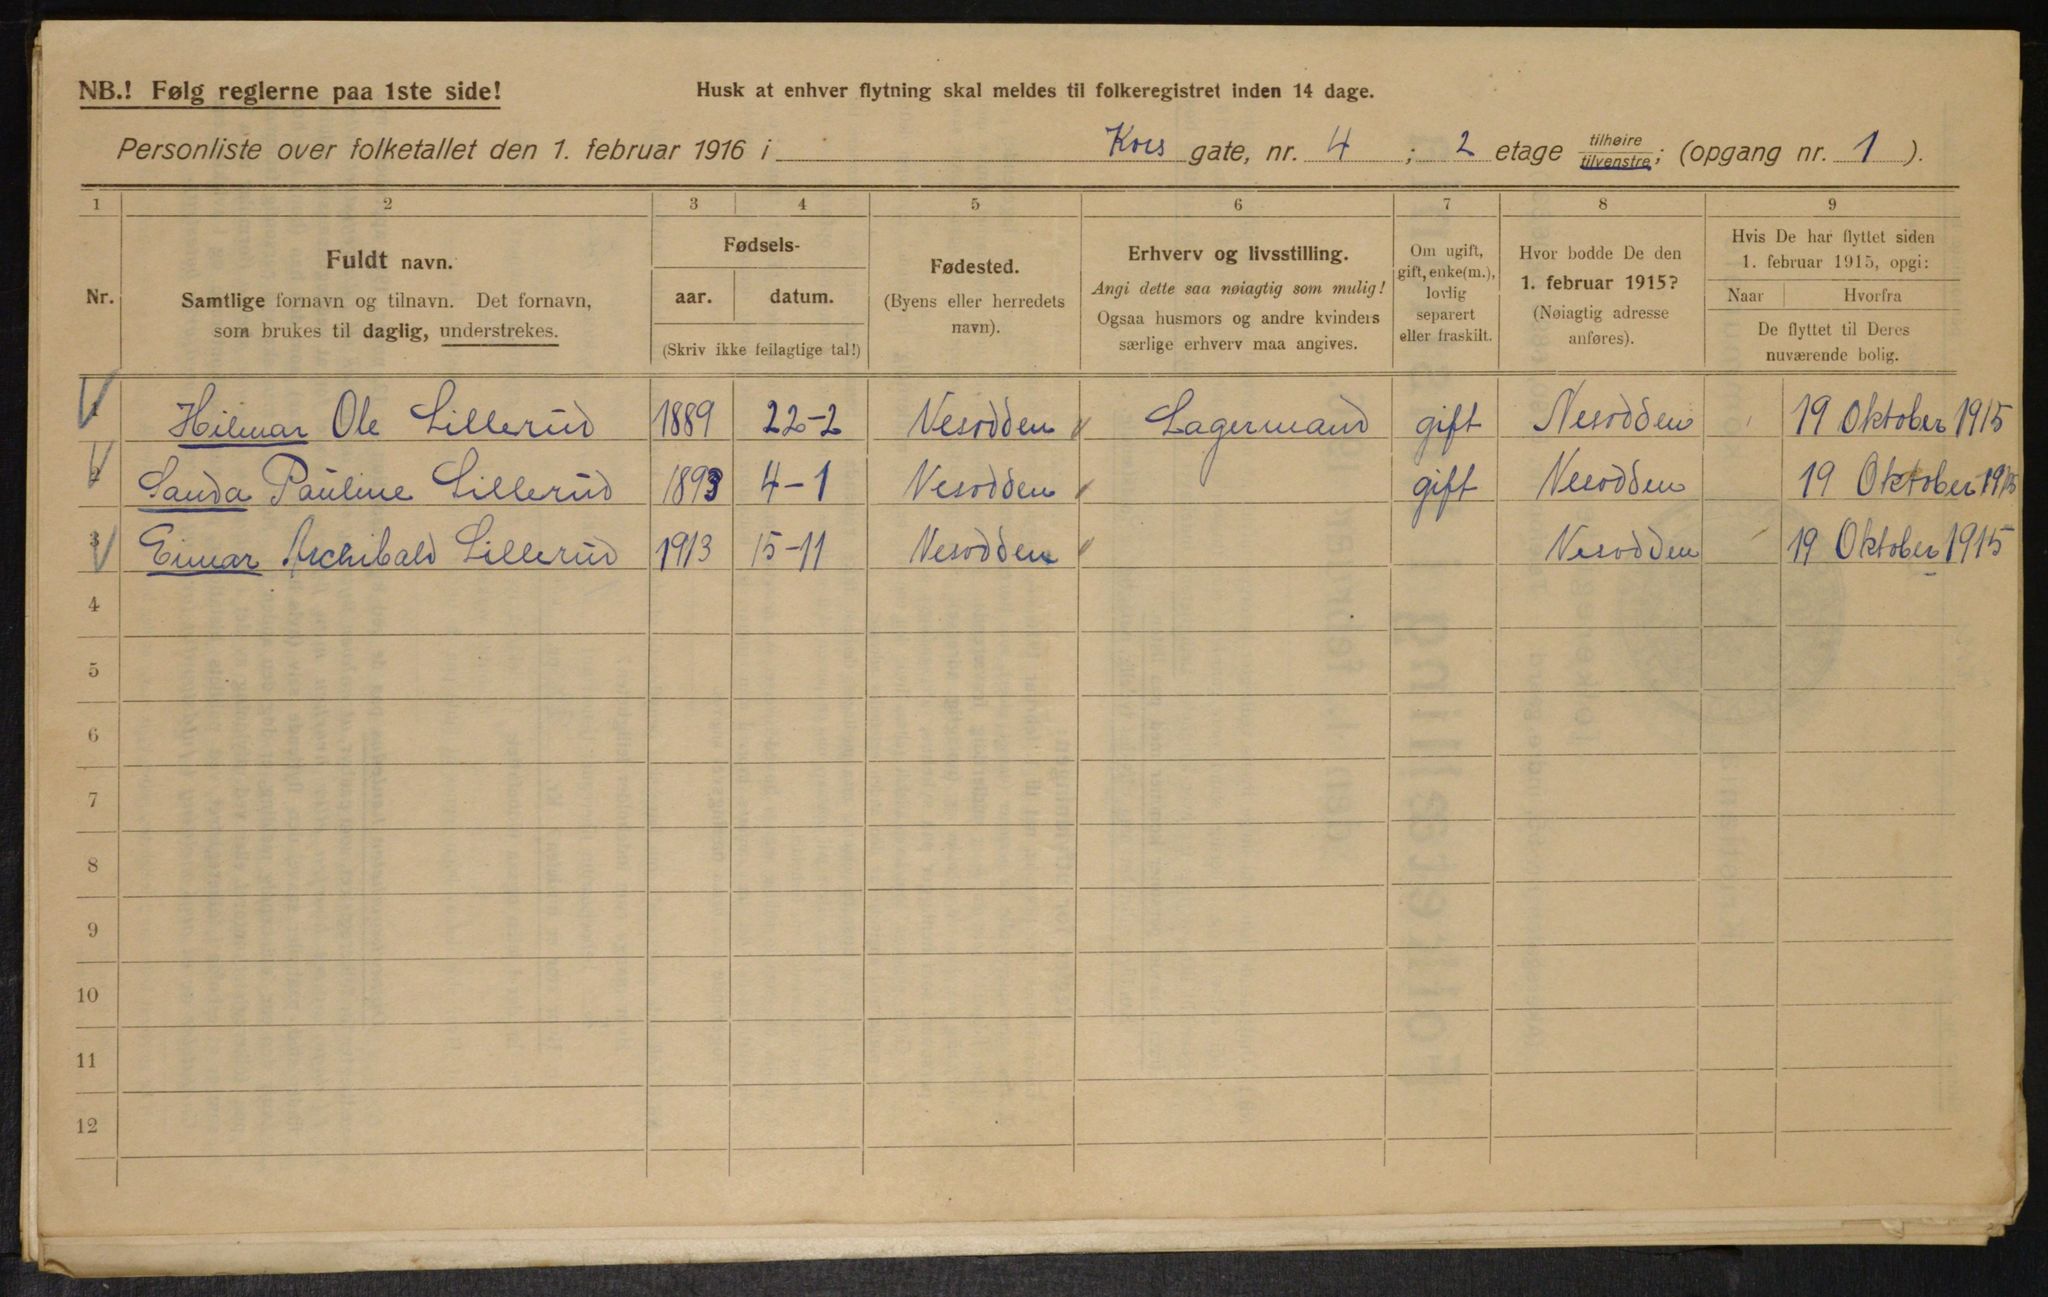 NB.! Følg reglerne paa 1ste side!
Husk at enhver flytning skal meldes til folkeregistret inden 14 dage.
Personliste over folketallet den 1. februar 1916 i Kors gate, nr. 4 ; 2 etage tilhøire tilvenstre; (opgang nr. 1 ).
1 2 3 4 5 6 7 8 9
Nr.
Fuldt navn.
Samtlige fornavn og tilnavn. Det fornavn,
som brukes til daglig, understrekes.
Fødsels-
aar. datum.
(Skriv ikke feilagtige tal!)
Fødested.
(Byens eller herredets
navn).
Erhverv og livsstilling.
Angi dette saa nøiagtig som mulig!
Ogsaa husmors og andre kvinders
særlige erhverv maa angives.
Om ugift,
gift, enke(m.),
lovlig
separert
eller fraskilt.
Hvor bodde De den
1. februar 1915?
(Nøiagtig adresse
anføres).
Hvis De har flyttet siden
1. februar 1915, opgi:
Naar Hvorfra
De flyttet til Deres
nuværende bolig.
1 Hilmar Ole Lillerud 1889 22-2 Nesodden Lagermand gift Nesodden 19 Oktober 1915
2 Pauline Lillerud 1893 4-1 Nesodden gift Nesodden 19 Oktober 1915
3 Einar Archibald Lillerud 1913 15-11 Nesodden Nesodden 19 Oktober 1915
4
5
6
7
8
9
10
11
12